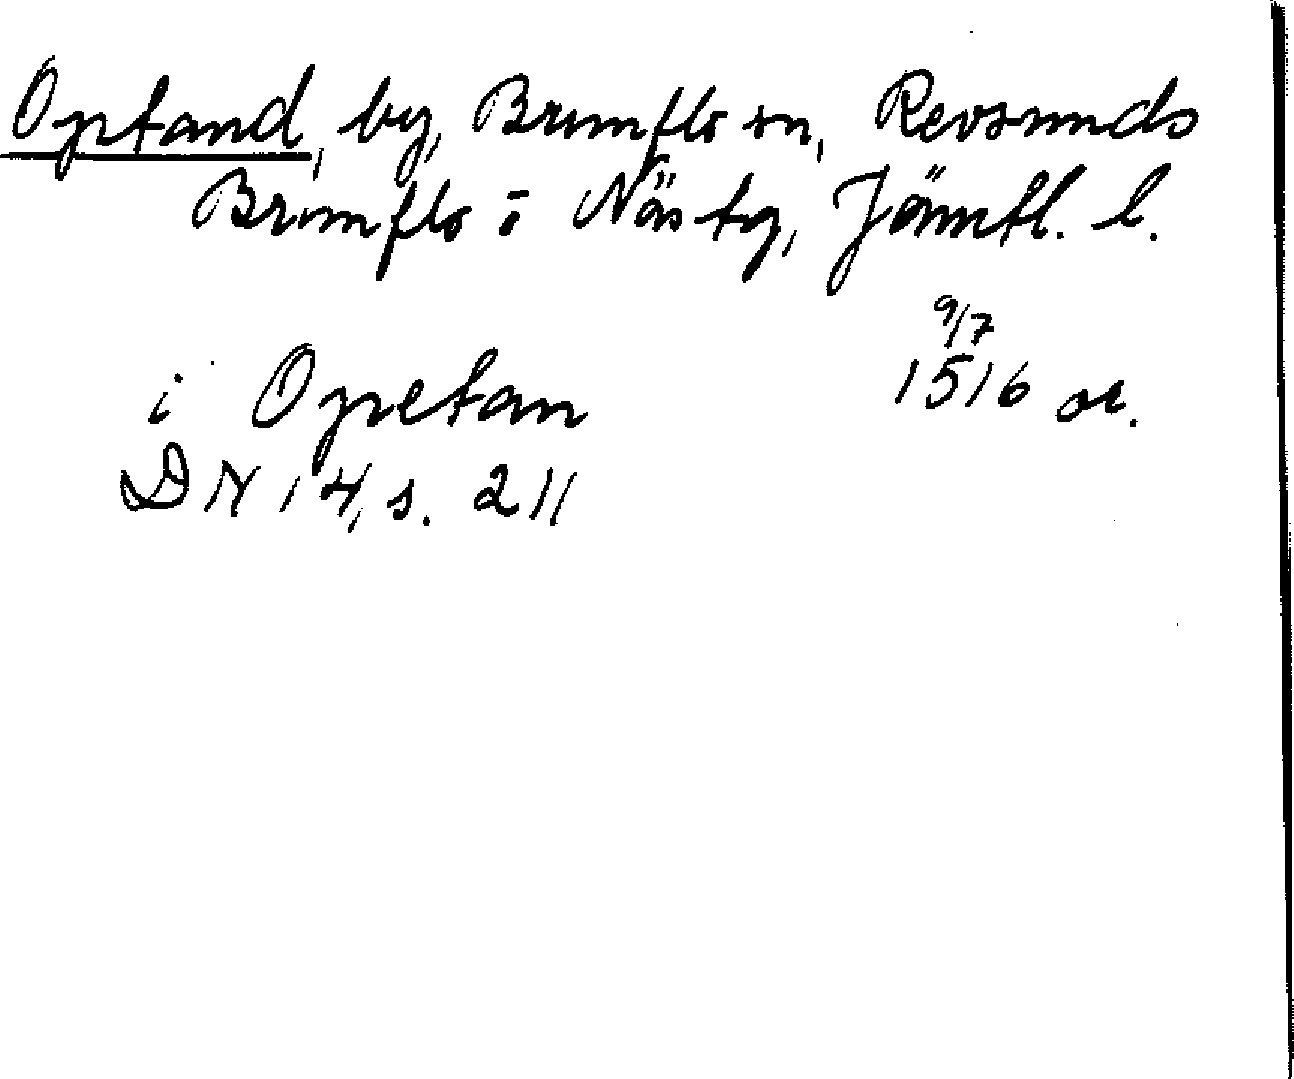 Optand, by, Brunflo sn, Revsunds
Brunflo o Näs tg, Jämtl. l.
9/7
i Opetan 1516 or.
DN 14, s. 211